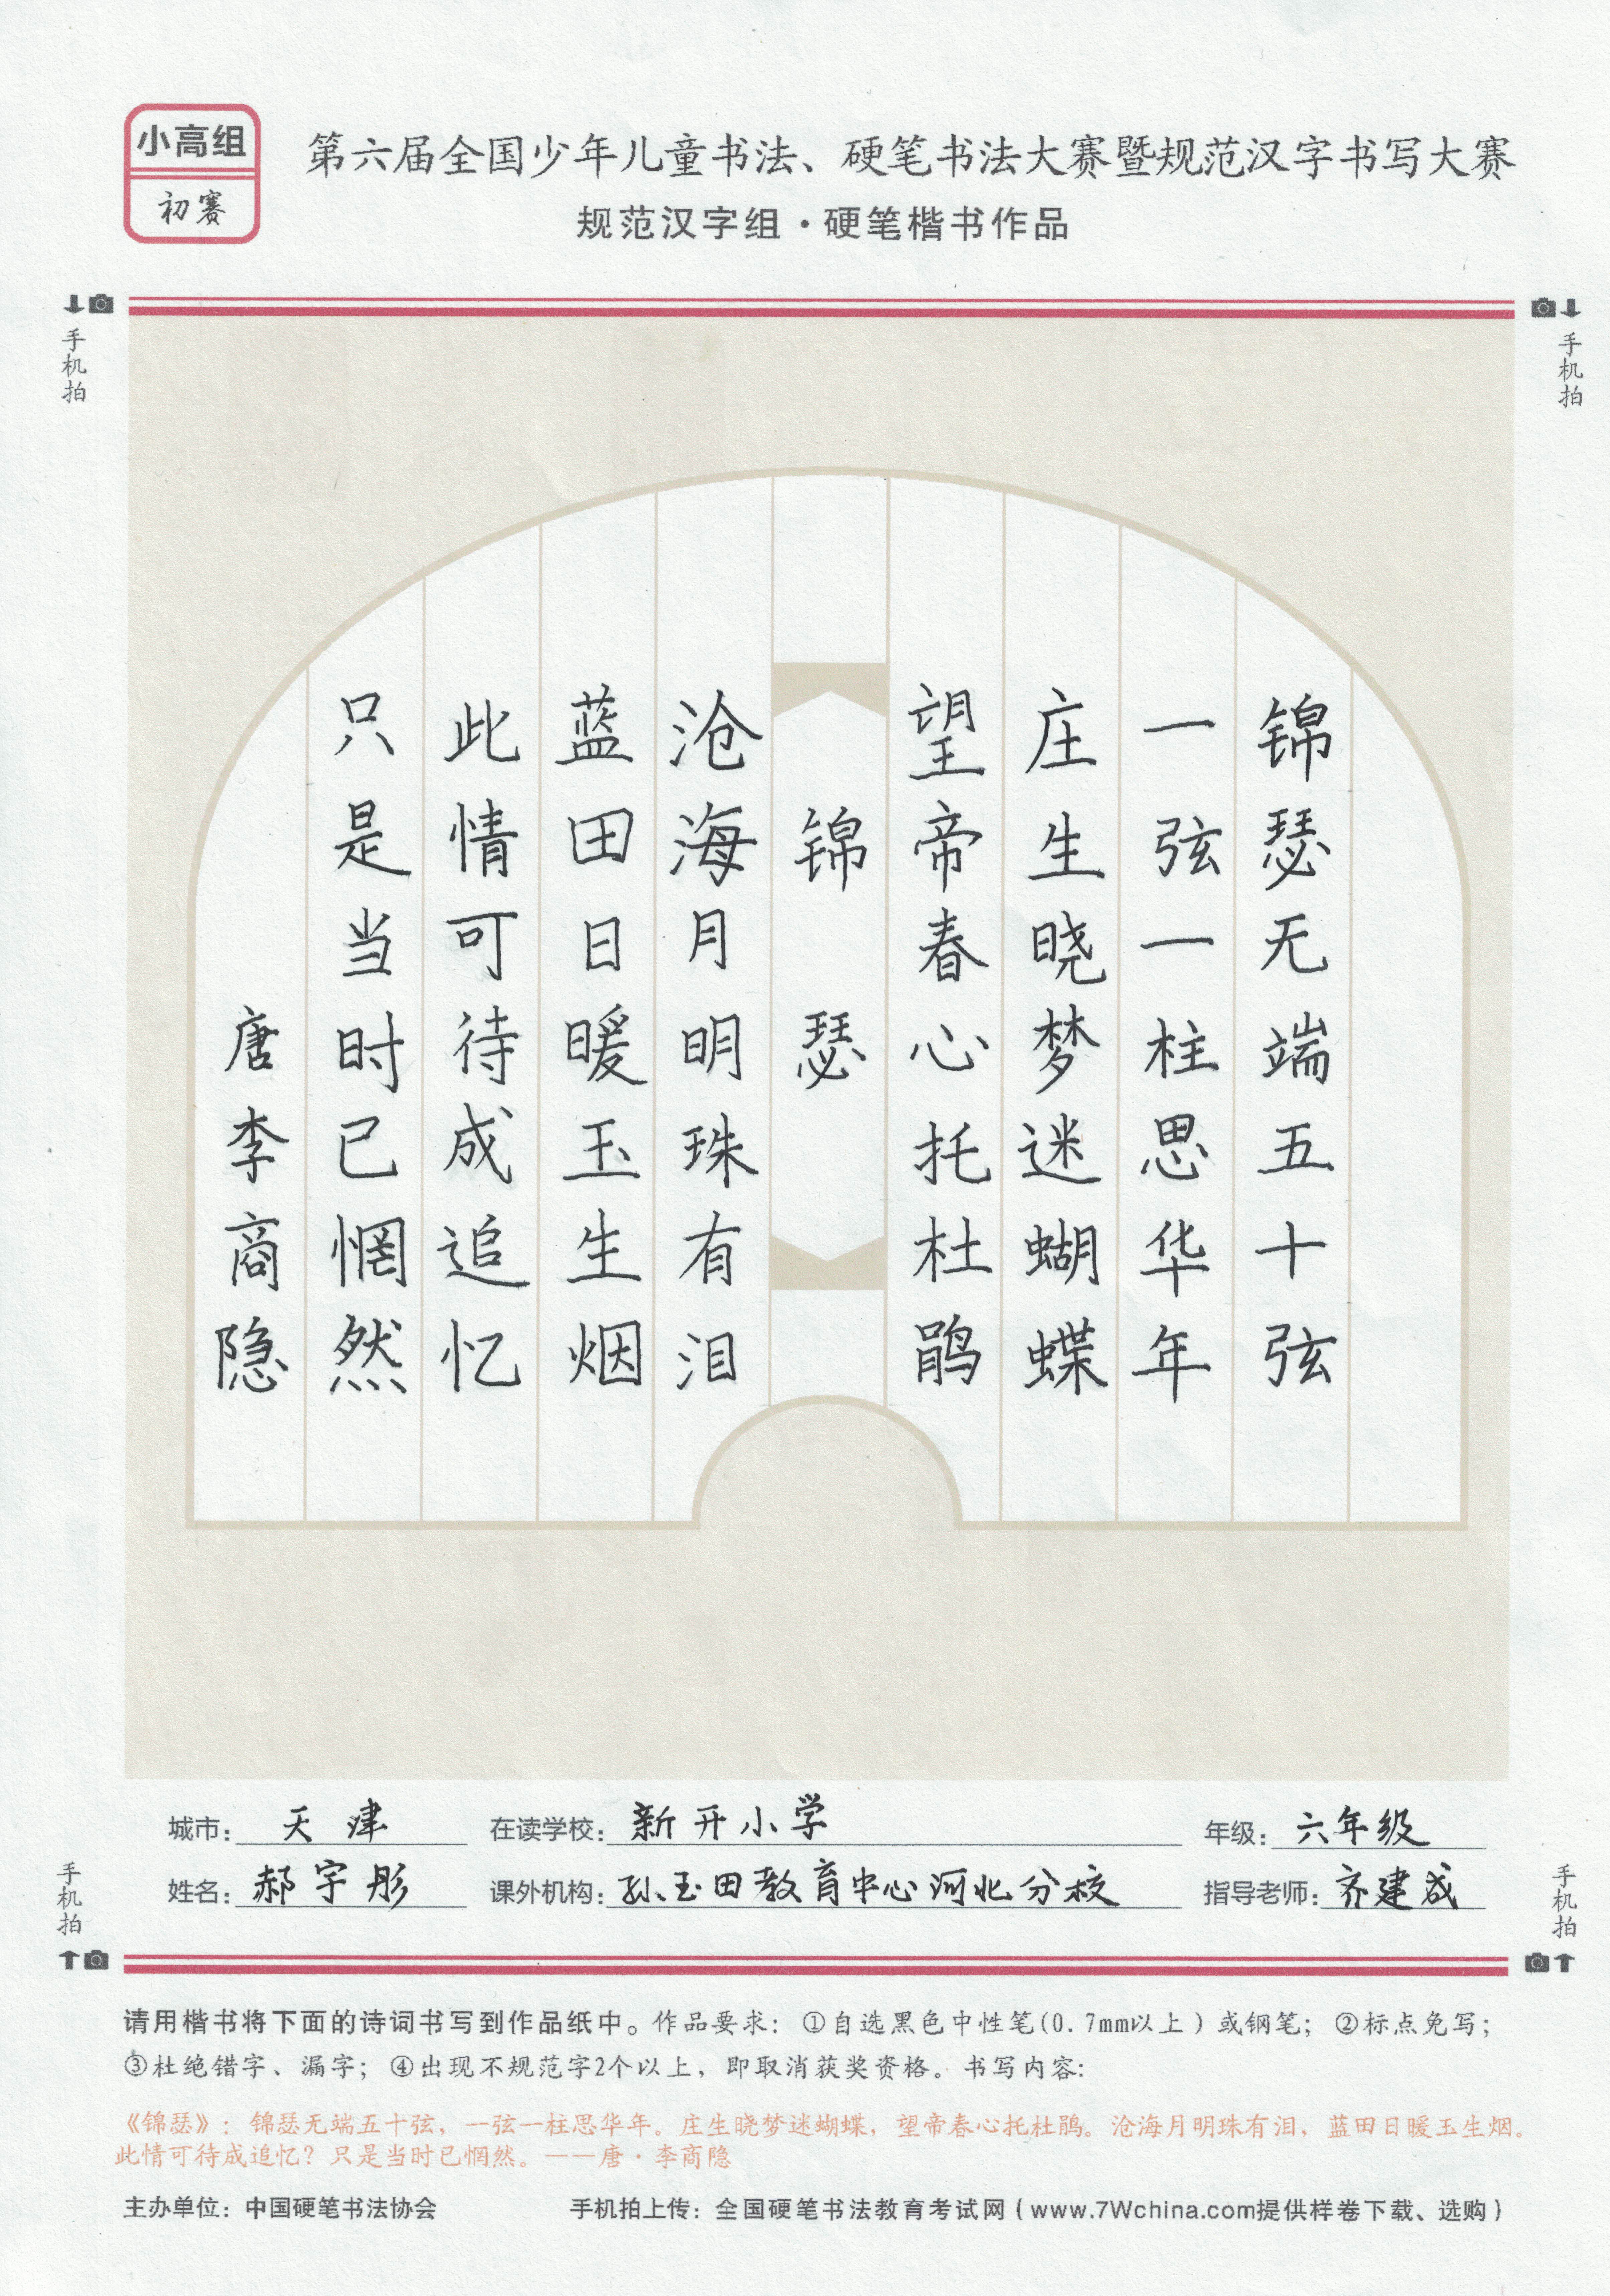 小高组
初赛
第六届全国少年儿童书法、硬笔书法大赛暨规范汉字书写大赛
规范汉字组·硬笔楷书作品
手机拍
手机拍
锦瑟无端五十弦
一弦一柱思华年
庄生晓梦迷蝴蝶
望帝春心托杜鹃
锦瑟
沧海月明珠有泪
蓝田日暖玉生烟
此情可待成追忆
只是当时已惘然
唐李商隐
城市：天津 在读学校：新开小学 年级：六年级
姓名：郝宇彤 课外机构：孙玉田教育中心河北分校 指导老师：齐建成
手机拍
手机拍
请用楷书将下面的诗词书写到作品纸中。作品要求：①自选黑色中性笔(0.7mm以上）或钢笔；②标点免写；
③杜绝错字、漏字；④出现不规范字2个以上，即取消获奖资格。书写内容：
《锦瑟》：锦瑟无端五十弦，一弦一柱思华年。庄生晓梦迷蝴蝶，望帝春心托杜鹃。沧海月明珠有泪，蓝田日暖玉生烟。
此情可待成追忆？只是当时已惘然。——唐·李商隐
主办单位：中国硬笔书法协会 手机拍上传：全国硬笔书法教育考试网（www.7Wchina.com提供样卷下载、选购）